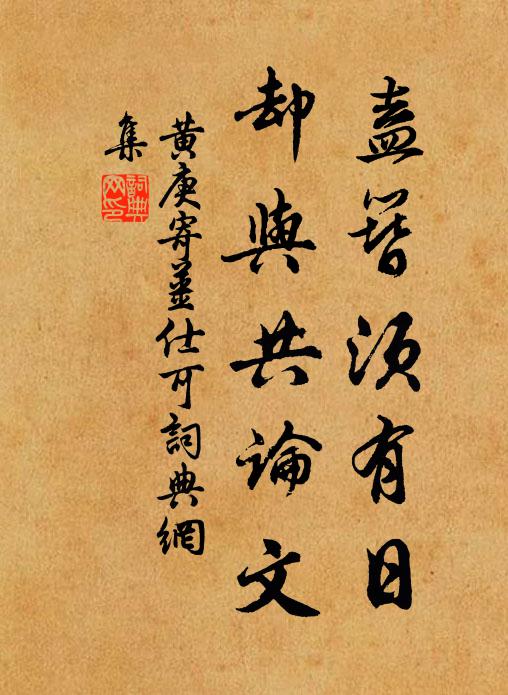 盍簪須有日
却與共論文
黄庚寄姜仕可詞典網
集
詞典
网印